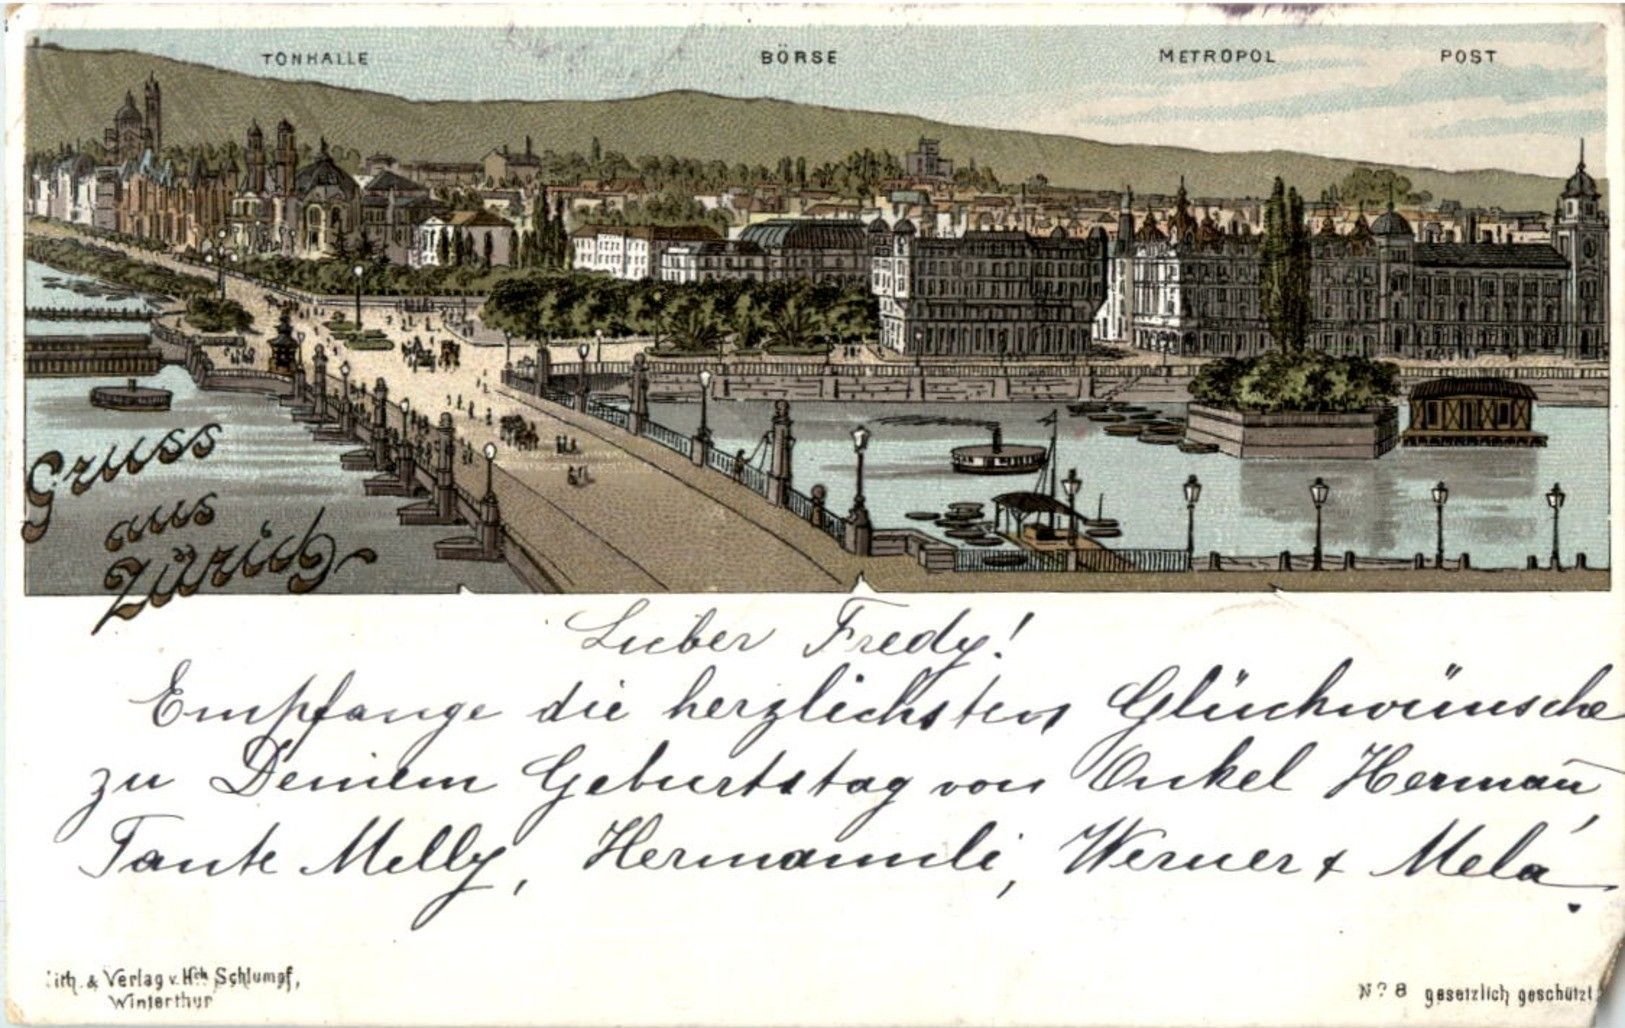 TONHALLE BÖRSE METROPOL POST
Gruss
aus
Zürich
Lieber Fredy!
Empfange die herzlichsten Glückwünsche
zu Deinem Geburtstag von Onkel Hermañ,
Tante Melly, Hermannli, Werner & Mela.
Lith. & Verlag v. Hch. Schlumpf,
Winterthur
No 8 gesetzlich geschützt.